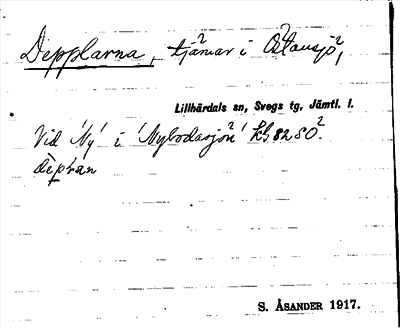 Depplarna, tjärnar i Öttansjö,
Lillhärdals sn, Svegs tg, Jämtl. l.
Vid 'Ny' i 'Nybodasjön' Kh 82 SO.
S. ÅSANDER 1917.